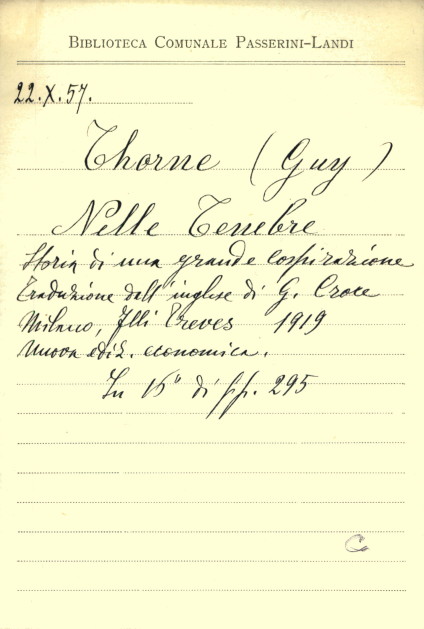 BIBLIOTECA COMUNALE PASSERINI-LANDI
22.X.57.
Thorne (Guy)
Nelle Tenebre
Storia di una grande cospirazione
Traduzione dall'inglese di G. Croce
Milano, Flli Treves 1919
nuova ediz. economica.
In 16° di pp. 295